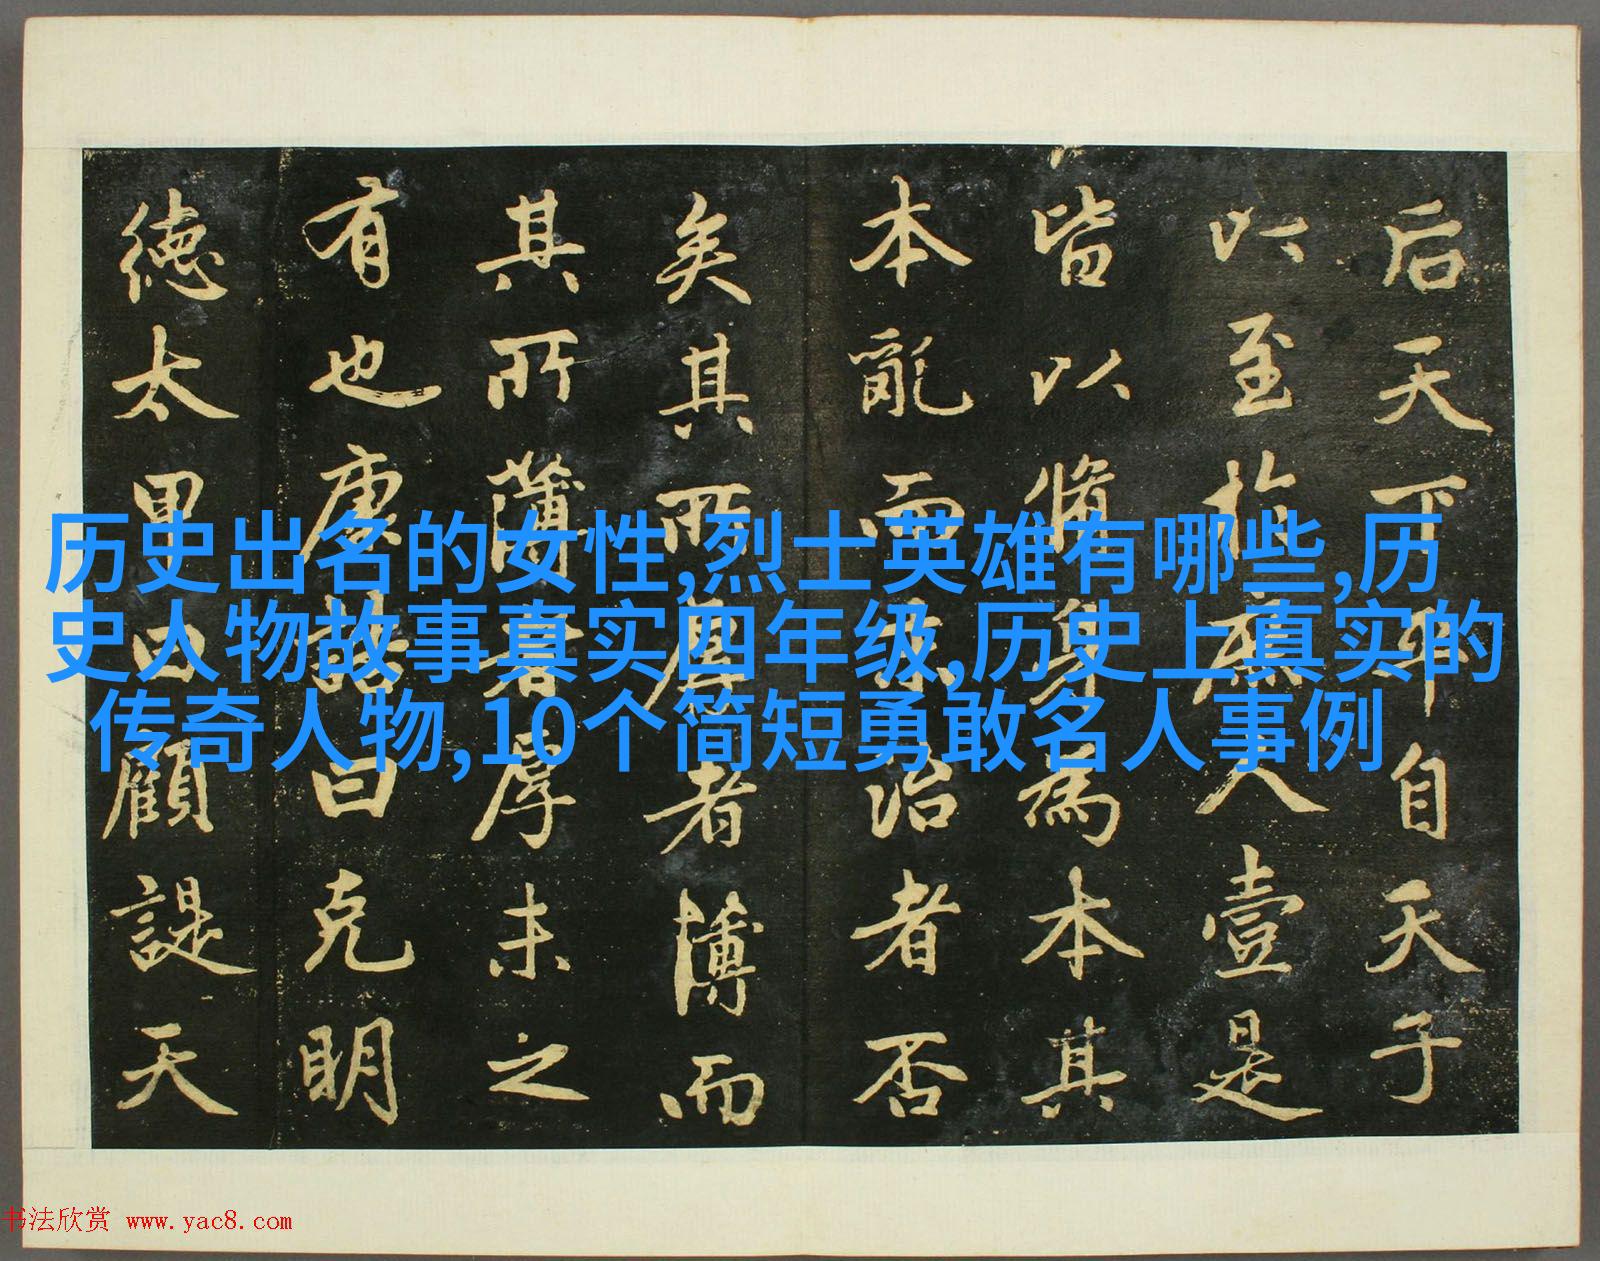 后天下平自天子
以至於庶人壹是
皆以脩身為本其
本亂而末治者否
矣其所厚者薄而
其所薄者厚未之
有也康誥曰克明
徳太甲曰顧諟天
历史出名的女性,烈士英雄有哪些,历
史人物故事真实四年级,历史上真实的
传奇人物,10个简短勇敢名人事例
书法欣赏 www.yac8.com